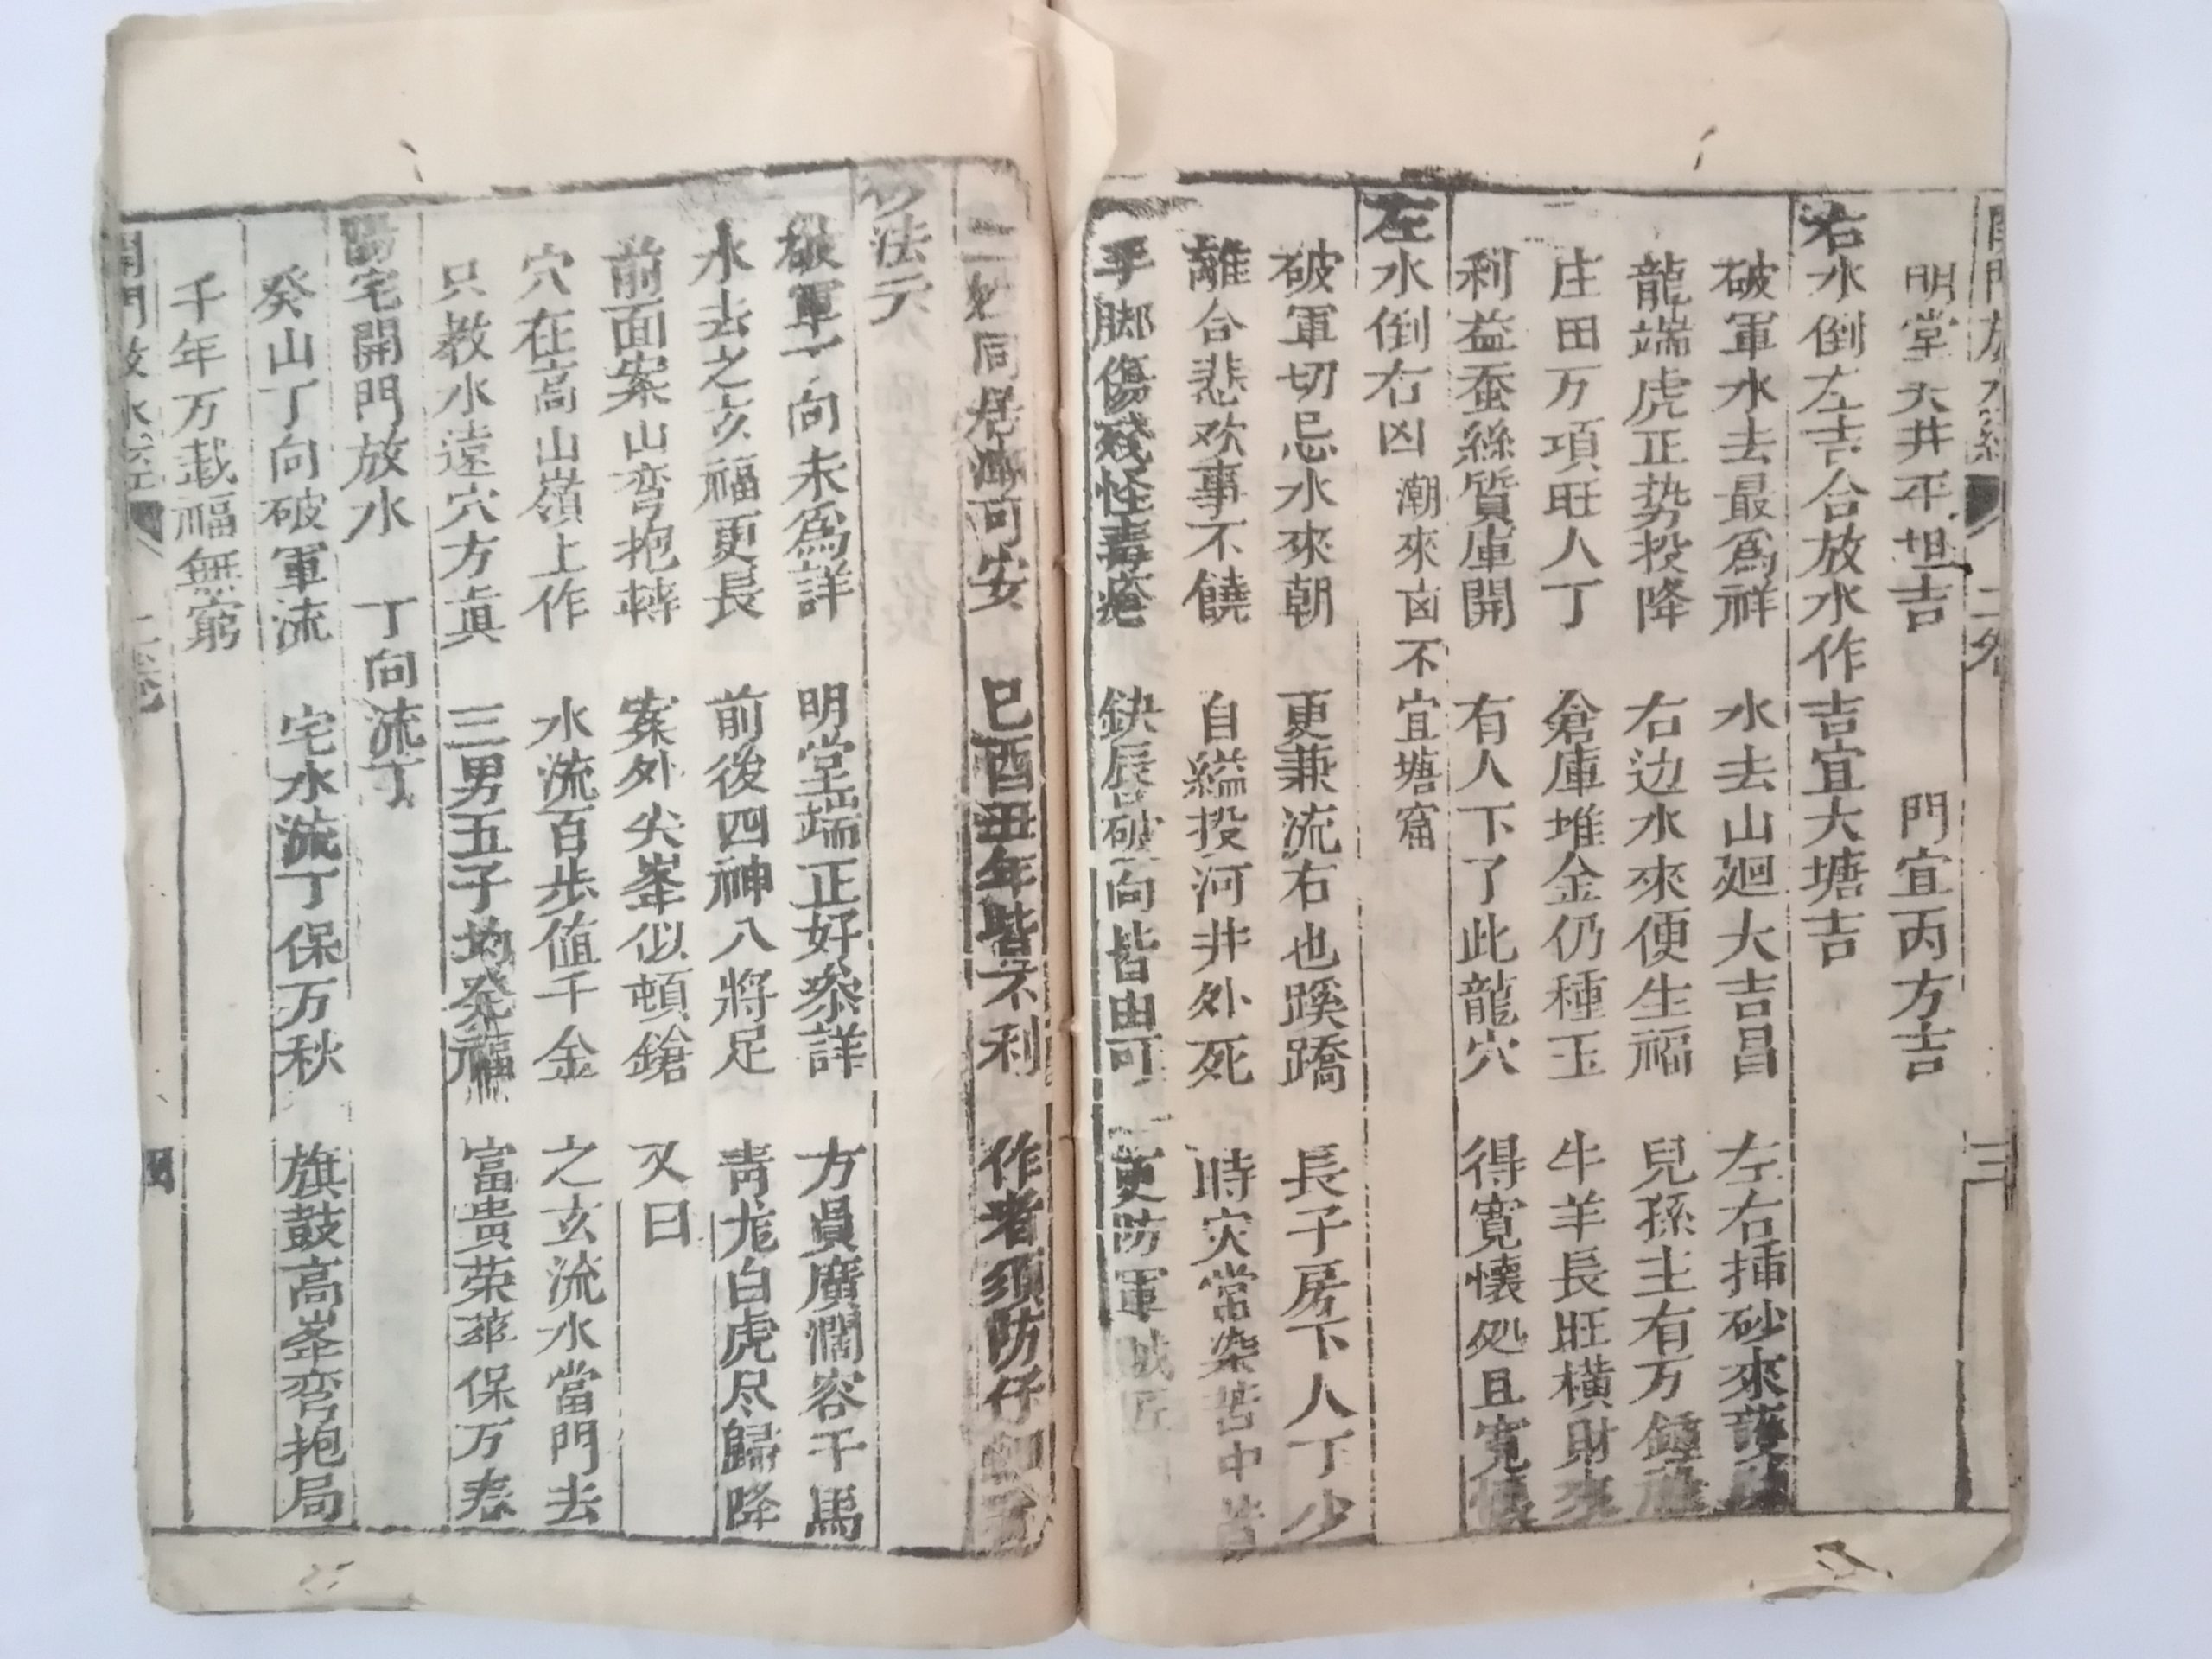 二卷 三
明堂天井平坦吉 門宜丙方吉
右水倒左吉合放水作吉宜大塘吉
破軍水去最爲祥 水去山廻大吉昌 左右揷砂來
龍端虎正势投降 右边水來便生福 兒孫主有万鍾
庄田万項旺人丁 倉庫堆金仍種玉 牛羊長旺橫財來
利益蚕絲質庫開 有人下了此龍穴 得寛懷処且寛懷
左水倒右凶 潮來凶不宜塘窟
破軍切忌水來朝 更兼流右也蹊蹺 長子房下人丁少
離合悲欢事不饒 自縊投河井外死 時灾當染苦中苦
手脚傷殘怪毒瘡 缺辰破向皆由可 更防軍賊
二姓同居 可安 巳酉丑年皆不利 作者须防仔細
法云
破軍丁向未爲詳 明堂端正好叅詳 方員廣濶容千馬
水去之玄福更長 前後四神八將足 青龙白虎尽歸降
前面案山弯抱轉 案外尖峯似頓鎗 又曰
穴在高山嶺上作 水流百步值千金 之玄流水當門去
只教水遠穴方眞 三男五子均発福 富贵荣華保万春
陽宅開門放水 丁向流丁
癸山丁向破軍流 宅水流丁保万秋 旗鼓高峯弯抱局
千年万載福無窮
開門放水 二卷 四